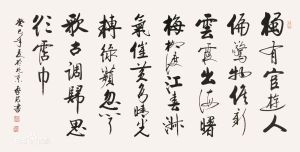 獨有宦遊人
偏驚物候新
雲霞出海曙
梅柳渡江春淑
氣催黃鳥晴光
轉綠蘋忽聞
歌古調歸思
欲霑巾
癸巳年 於北京